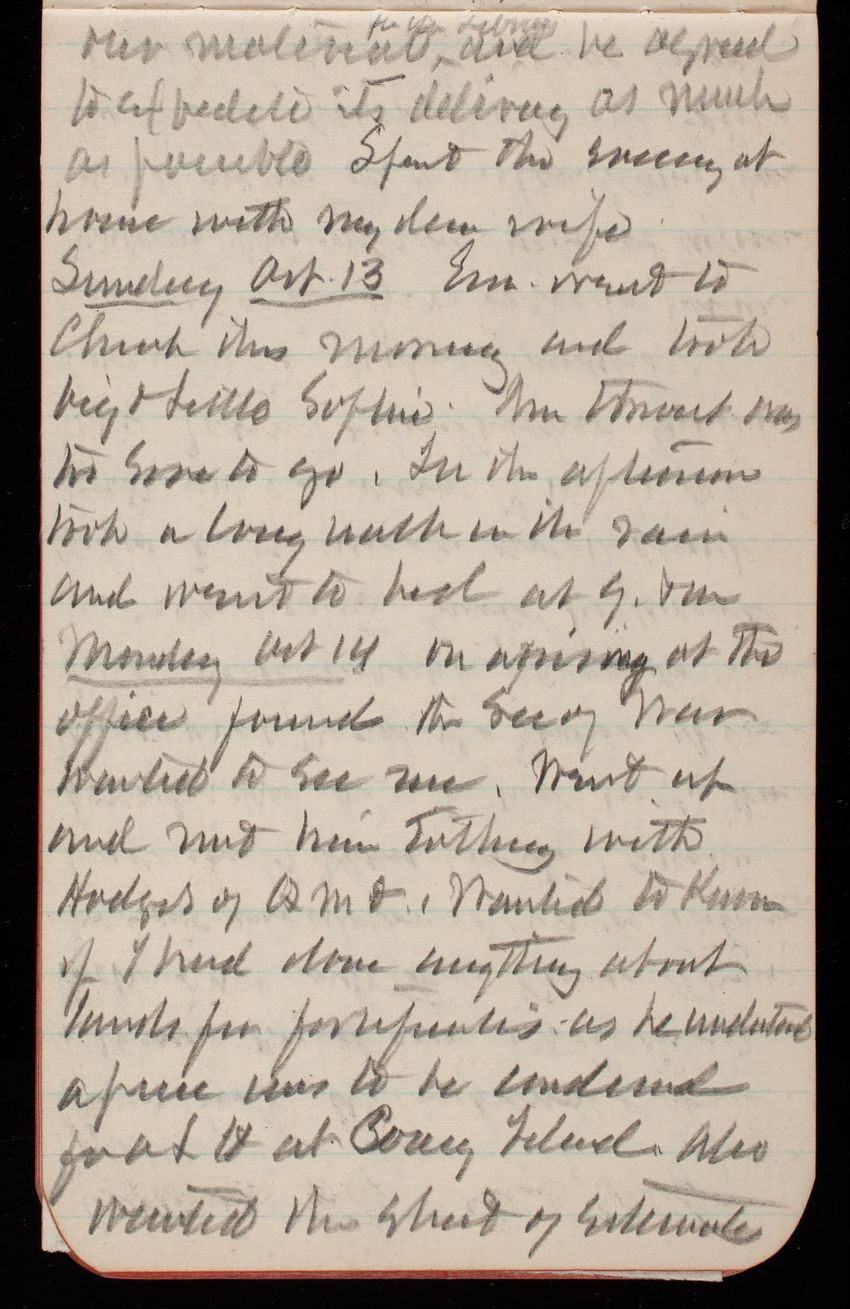 for the Library
our material, and he agreed
to expedite its delivery as much
as possible Spent the evening at
home with my dear wife
Sunday Oct. 13 Em. went to
Church this morning and took
big & little Sophie. throat was
too sore to go. In the afternoon
took a long walk in the rain
and went to bed at 9.
Monday Oct 14 on arriving at the
office found the Sec of War
wanted to see me. Went up
and met him together with
Hodges of Wanted to Know
if I had done anything about
lands for fortifications as he understood
a piece was to be condemned
for at Coney Island. Also
wanted the sheet of estimates